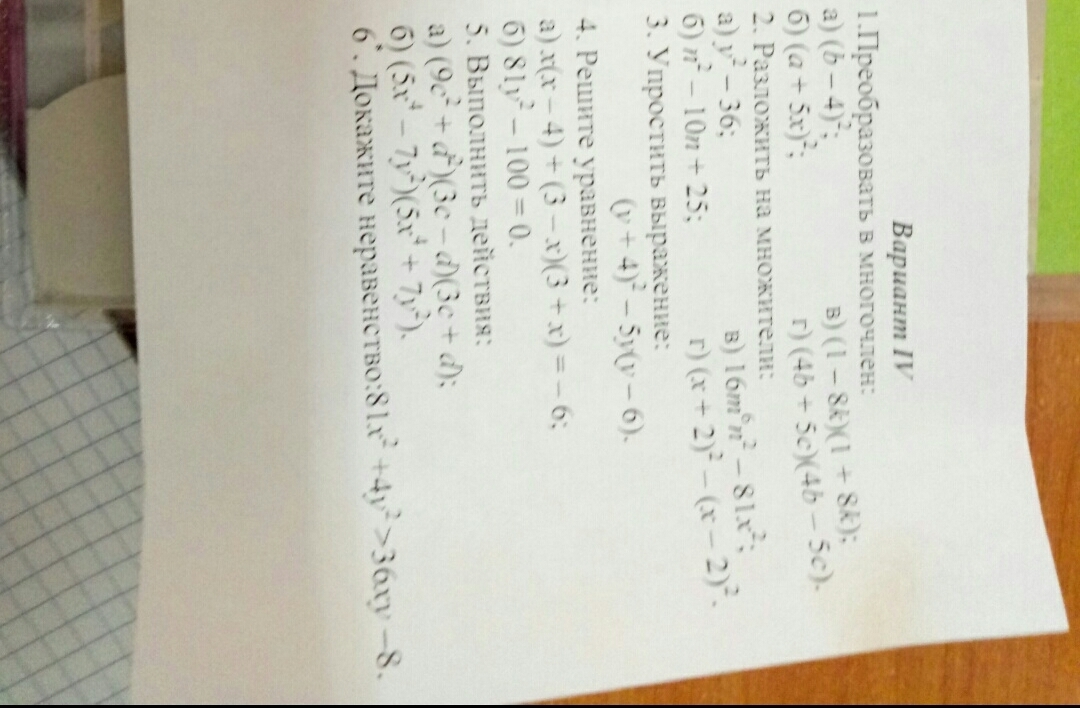 Вариант IV
1.Преобразовать в многочлен:
а) (b – 4)²; в) (1 – 8k)(1 + 8k);
б) (a + 5x)²; г) (4b + 5c)(4b – 5c).
2. Разложить на множители:
а) y² – 36; в) 16m⁶n² – 81x²;
б) n² – 10n + 25; г) (x + 2)² – (x – 2)².
3. Упростить выражение:
(y + 4)² – 5y(y – 6).
4. Решите уравнение:
а) x(x – 4) + (3 – x)(3 + x) = – 6;
б) 81y² – 100 = 0.
5. Выполнить действия:
а) (9c² + d²)(3c – d)(3c + d);
б) (5x⁴ – 7y²)(5x⁴ + 7y²).
6*. Докажите неравенство:81x² +4y²>36xy –8.